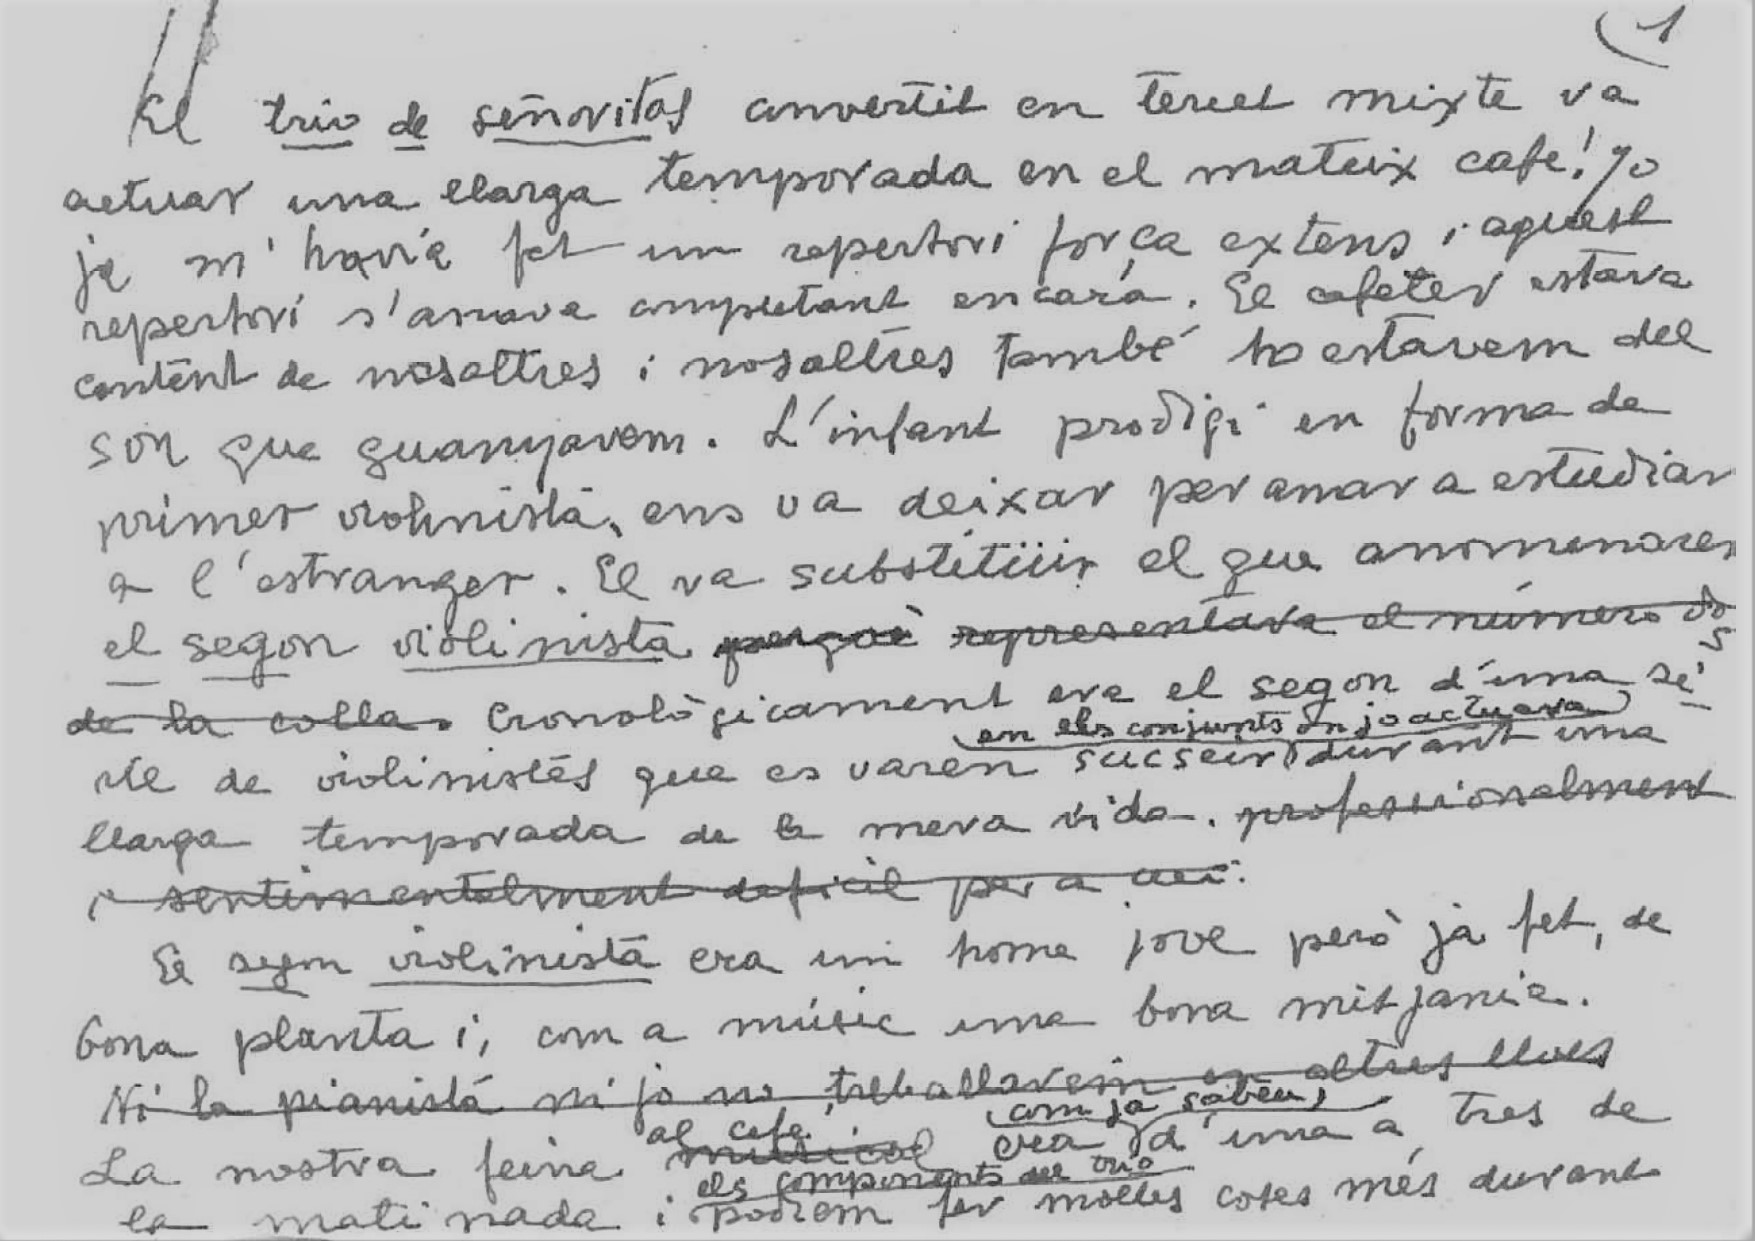 1
El trio de señoritas convertit en tercet mixte va
actuar una llarga temporada en el mateix cafe! Jo
ja m'havia fet un repertori força extens i aquest
repertori s'anava completant encara. El cafeter estava
content de nosaltres i nosaltres també ho estavem del
sou que guanyavem. L'infant prodigi en forma de
primer violinista, ens va deixar per anar a estudiar
a l'estranger. El va substituïr el que anomenaren
el segon violinista perquè representava el número dos
de la colla. Cronològicament era el segon d'una sè-
en els conjunts on jo actuava
rie de violinistes que es varen succeir durant una
llarga temporada de la meva vida. professionalment
i sentimentalment dificil per a mi.
El segon violinista era un home jove però ja fet, de
bona planta i, com a músic una bona mitjania.
Ni la pianista ni jo no treballavem en altres llocs
al cafe com ja sabeu,
La nostra feina musical era d'una a tres de
els components del trio
la matinada i podiem fer moltes coses més durant